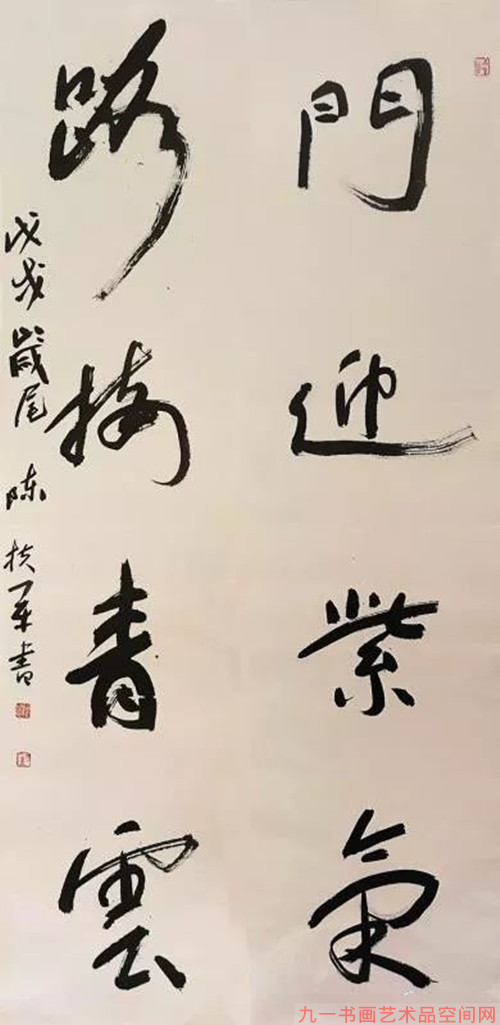 門迎紫氣
路接青雲
戊戌歲尾 陈扶军书
九一书画艺术品空间网